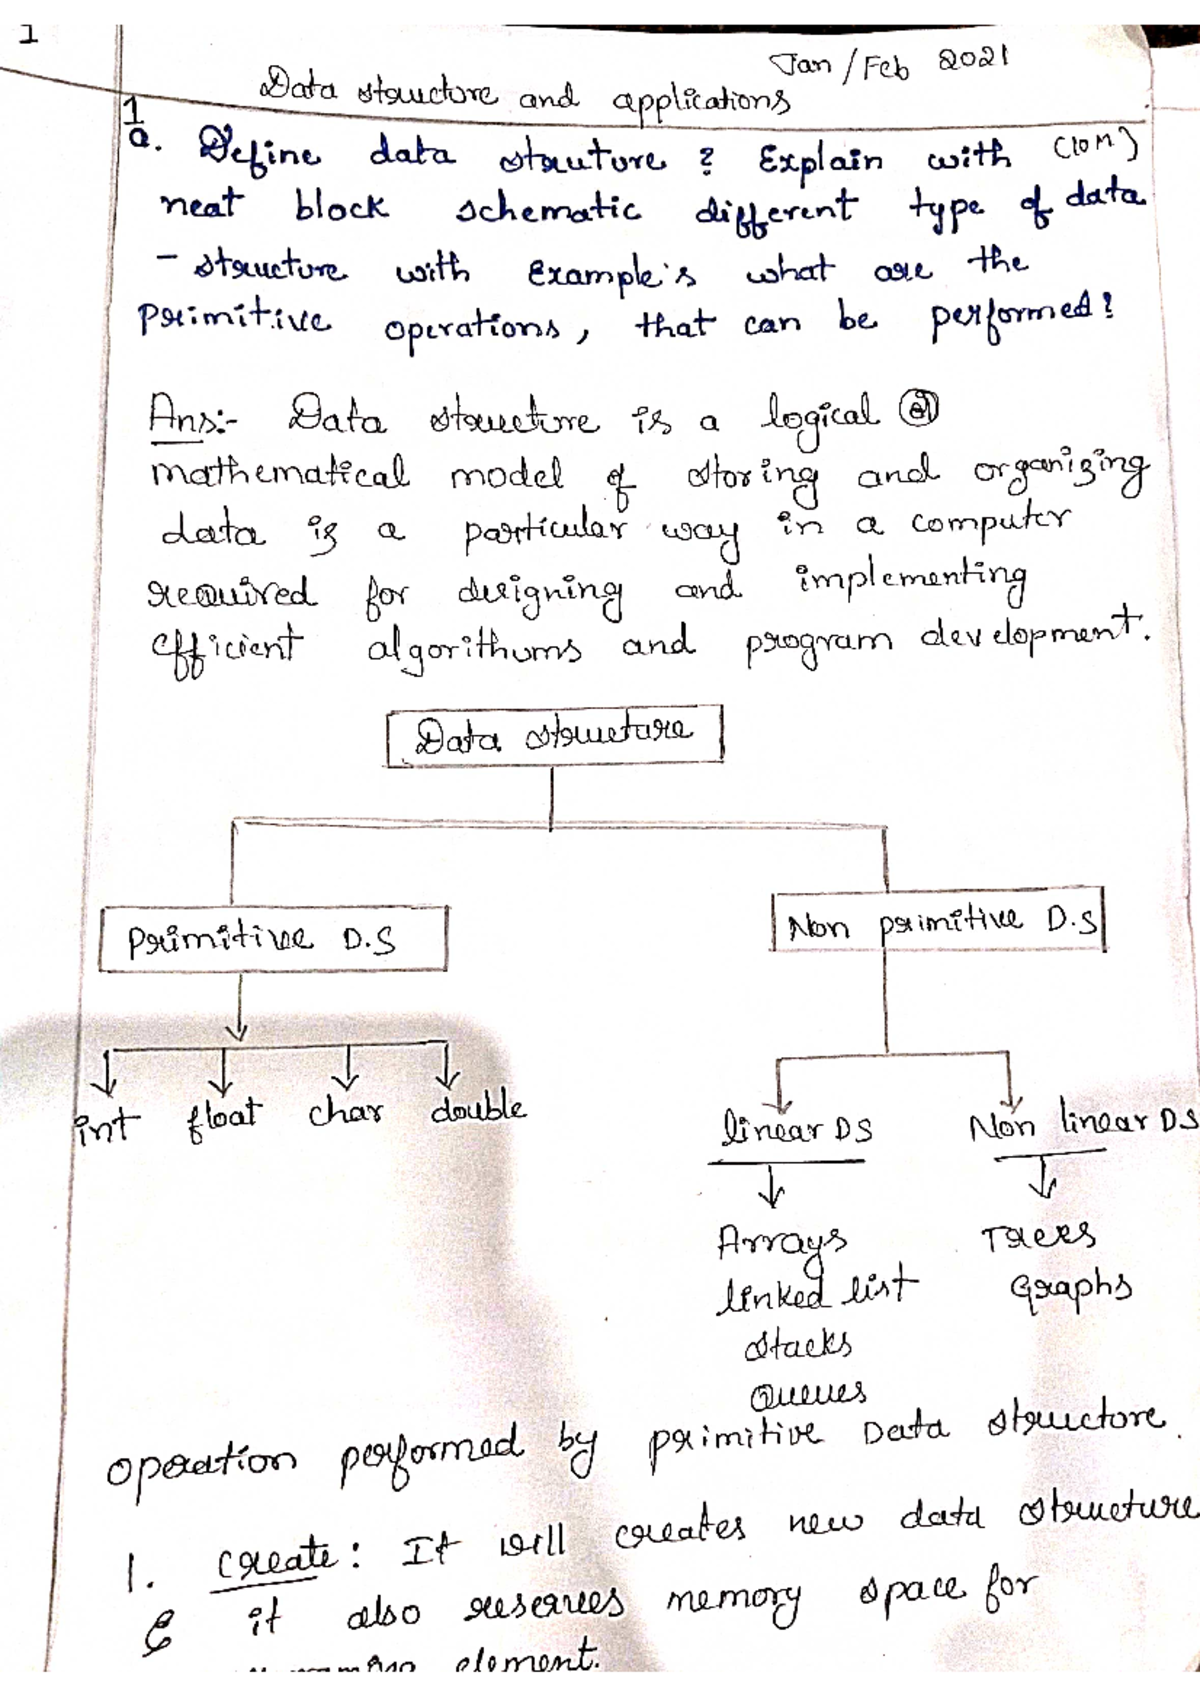 1
Jan / Feb 2021
Data structure and applications
1
a. Define data struture ? Explain with (10M)
neat block schematic different type of data
- structure with Example's what are the
primitive operations, that can be performed?
Ans:- Data structure is a logical or
mathematical model of storing and organizing
data is a particular way in a computer
required for designing and implementing
efficient algorithums and program development.
Data structure
Primitive D.S
Non primitive D.S
int float char double
linear DS
Non linear DS
Arrays
Trees
linked list
Graphs
stacks
Queues
operation performed by primitive Data structure.
1. Create: It will creates new data structure
& it also reserves memory space for
element.